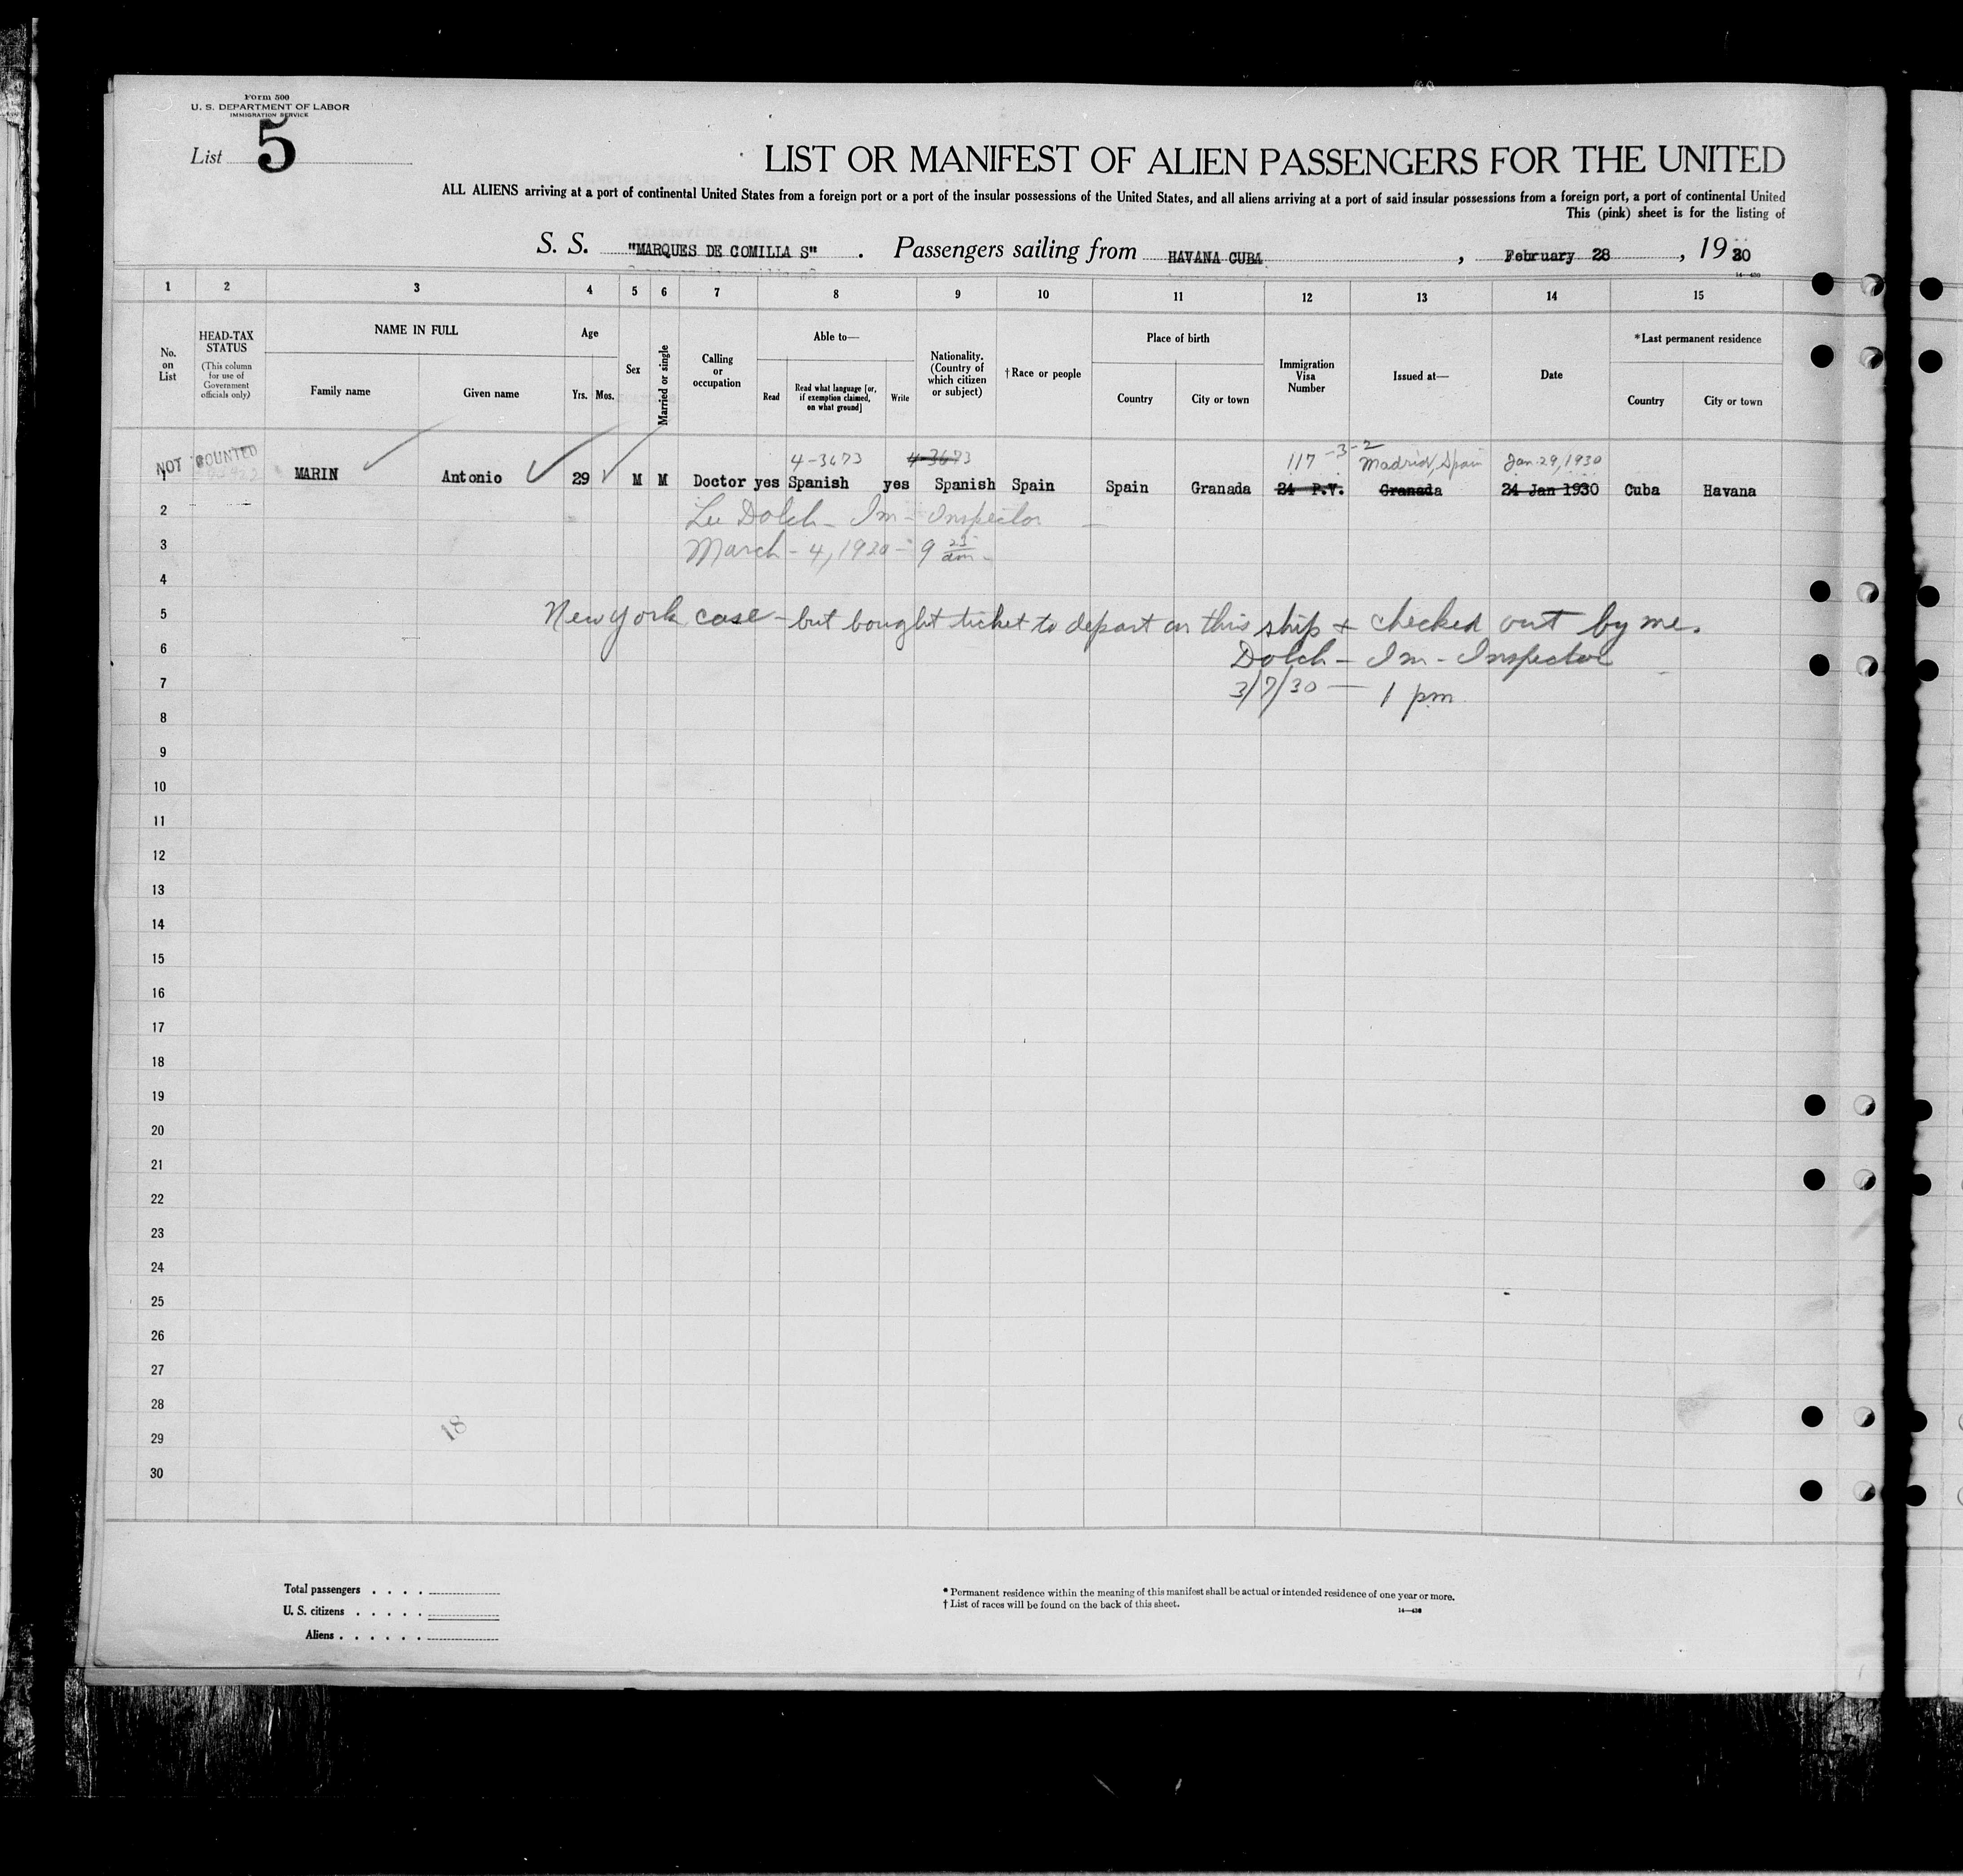 Form 500
U. S. DEPARTMENT OF LABOR
IMMIGRATION SERVICE
List 5
LIST OR MANIFEST OF ALIEN PASSENGERS FOR THE UNITED
ALL ALIENS arriving at a port of continental United States from a foreign port or a port of the insular possessions of the United States, and all aliens arriving at a port of said insular possessions from a foreign port, a port of continental United
This (pink) sheet is for the listing of
S. S. "MARQUES DE COMILLA S" . Passengers sailing from HAVANA CUBA , February 28 , 1930
14—430
1 2 3 4 5 6 7 8 9 10 11 12 13 14 15
No. on List
HEAD-TAX STATUS
(This column for use of Government officials only)
NAME IN FULL
Family name
Given name
Age
Yrs.
Mos.
Sex
Married or single
Calling or occupation
Able to—
Read
Read what language [or, if exemption claimed, on what ground]
Write
Nationality. (Country of which citizen or subject)
†Race or people
Place of birth
Country
City or town
Immigration Visa Number
Issued at—
Date
*Last permanent residence
Country
City or town
NOT COUNTED
4-3673 4-3673 117 -3-2 Madrid, Spain Jan. 29, 1930
1 MARIN Antonio 29 M M Doctor yes Spanish yes Spanish Spain Spain Granada 24 P.V. Granada 24 Jan 1930 Cuba Havana
2 Lee Dolch - Im - Inspector
3 March - 4, 1930 - 9 25 am -
4
5 New York case - but bought ticket to depart on this ship + checked out by me.
6 Dolch - Im - Inspector
7 3/7/30 — 1 pm
8
9
10
11
12
13
14
15
16
17
18
19
20
21
22
23
24
25
26
27
28
18
29
30
Total passengers . . . .
U. S. citizens . . . . .
Aliens . . . . . .
* Permanent residence within the meaning of this manifest shall be actual or intended residence of one year or more.
† List of races will be found on the back of this sheet.
14—430